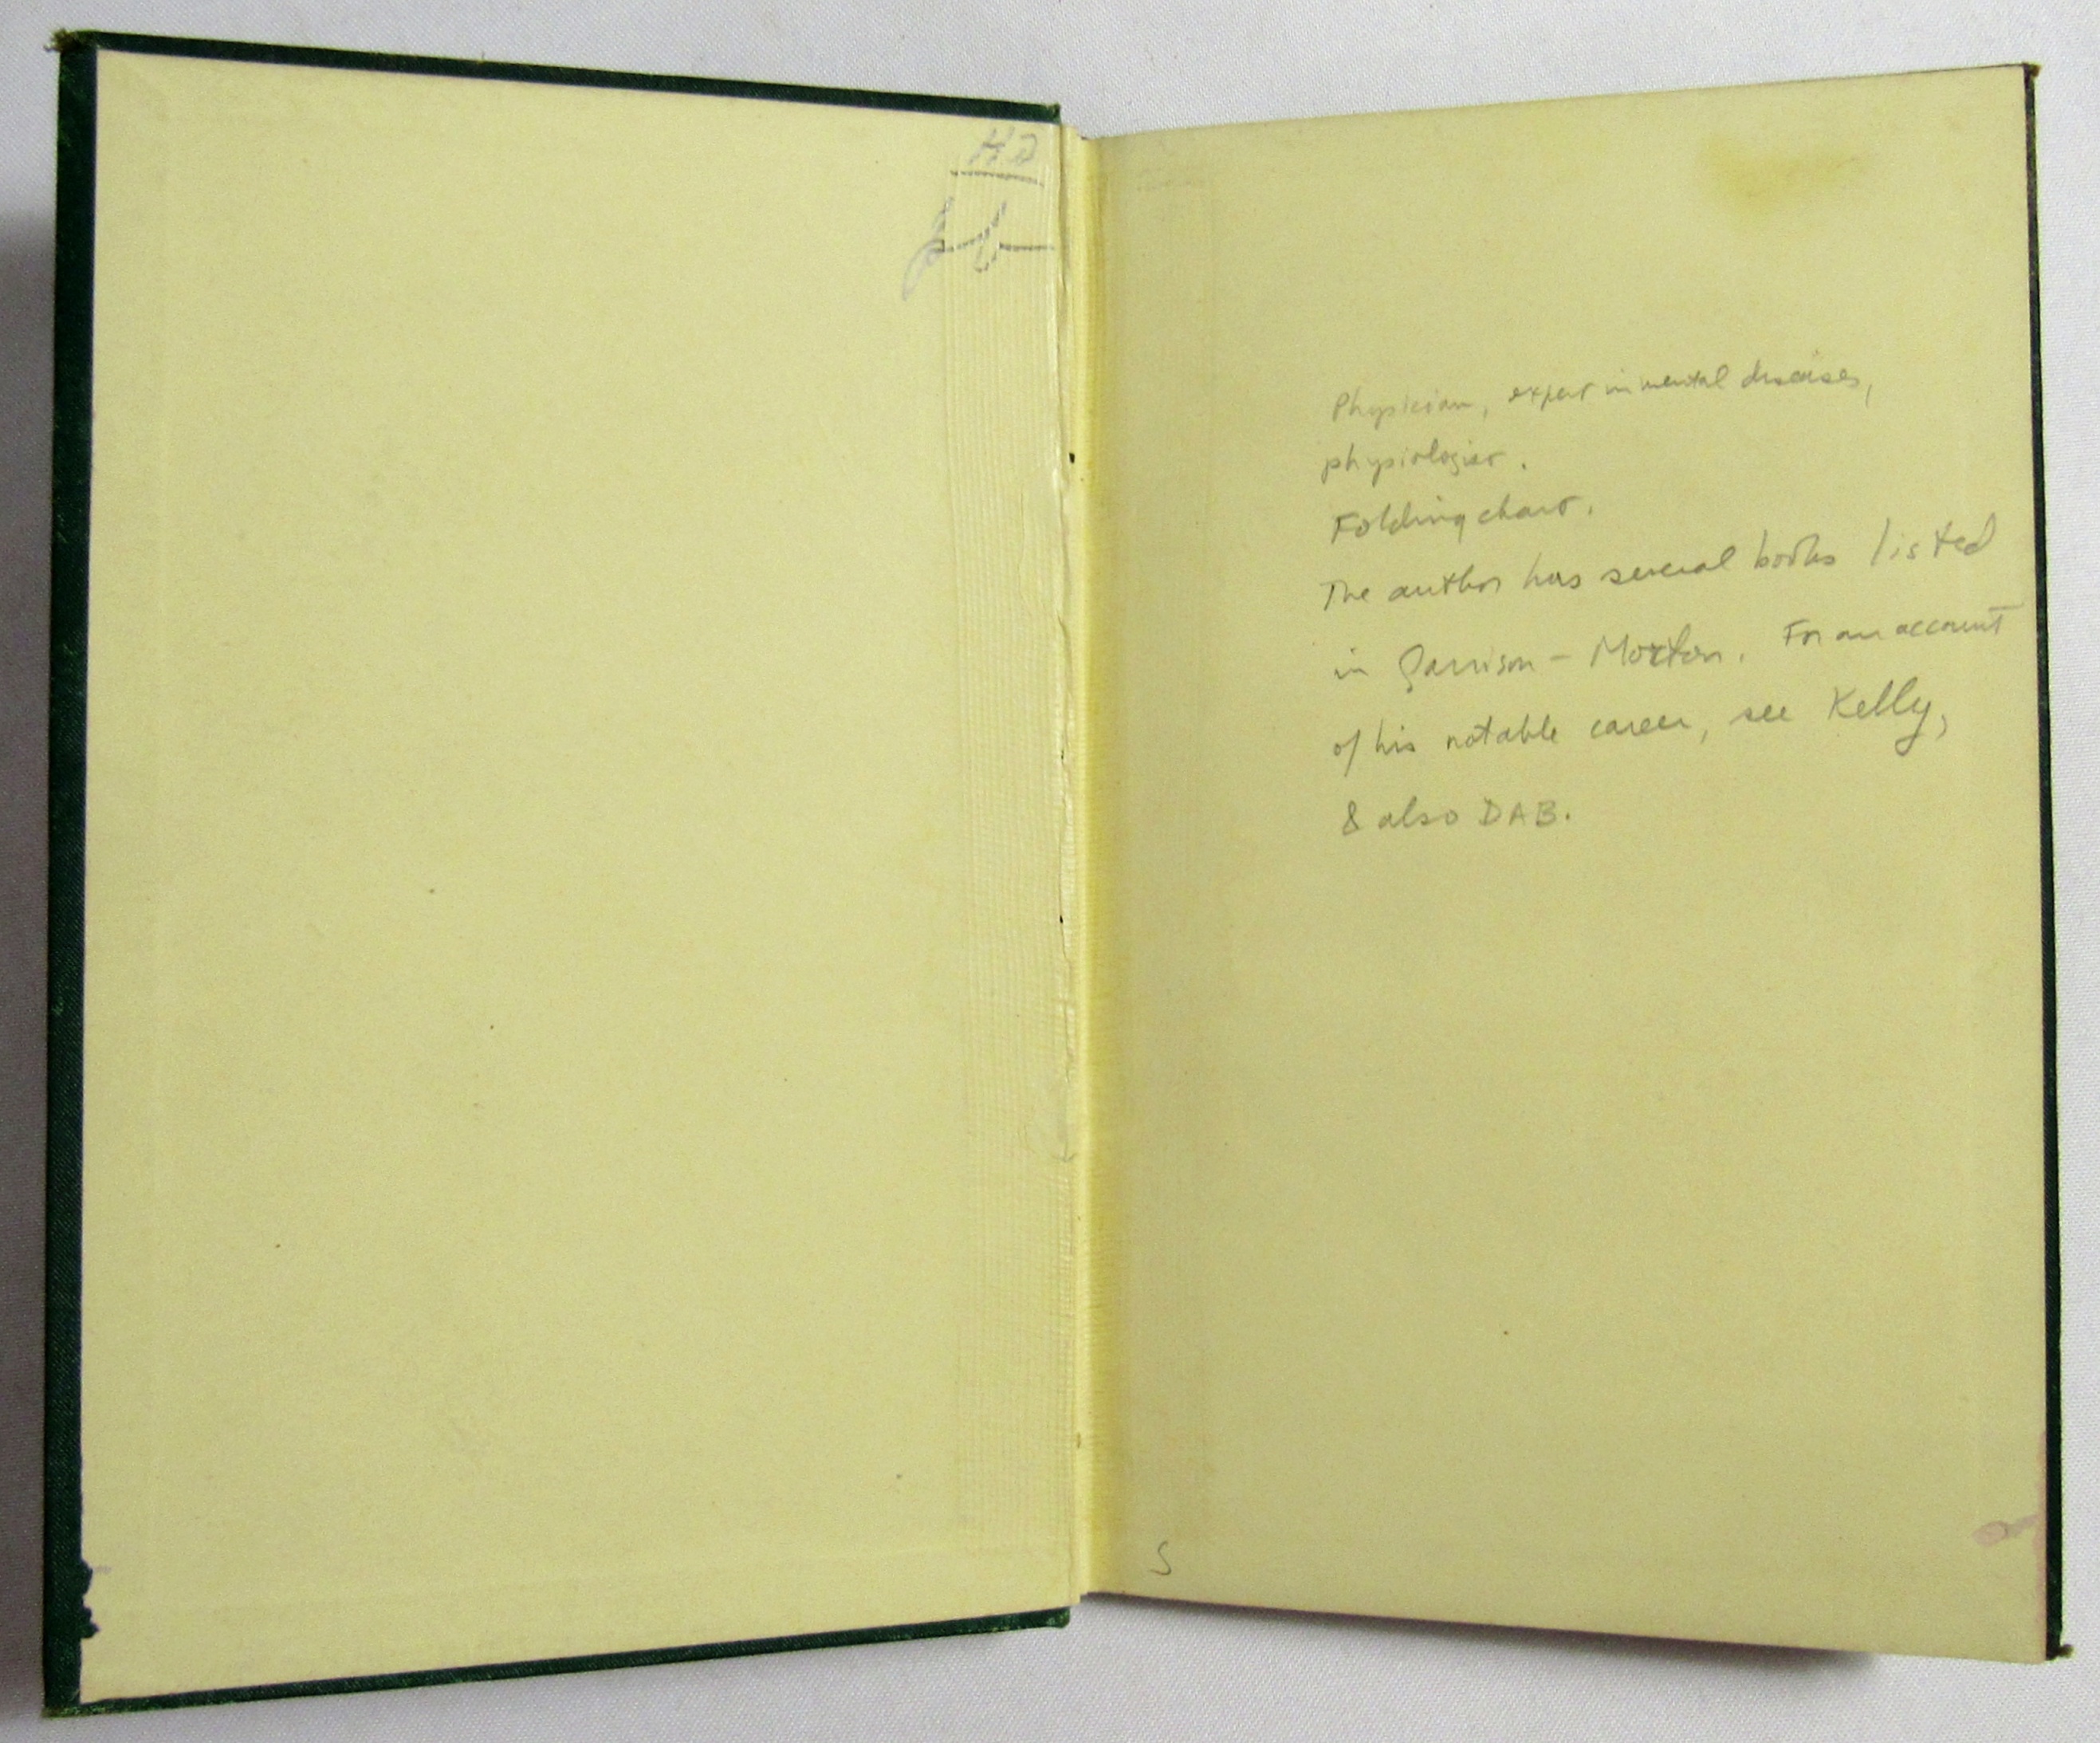 Physician, expert in mental diseases,
physiologist.
Folding chart.
The author has several books listed
in Garrison-Morton. For an account
of his notable career, see Kelly,
& also DAB.
S